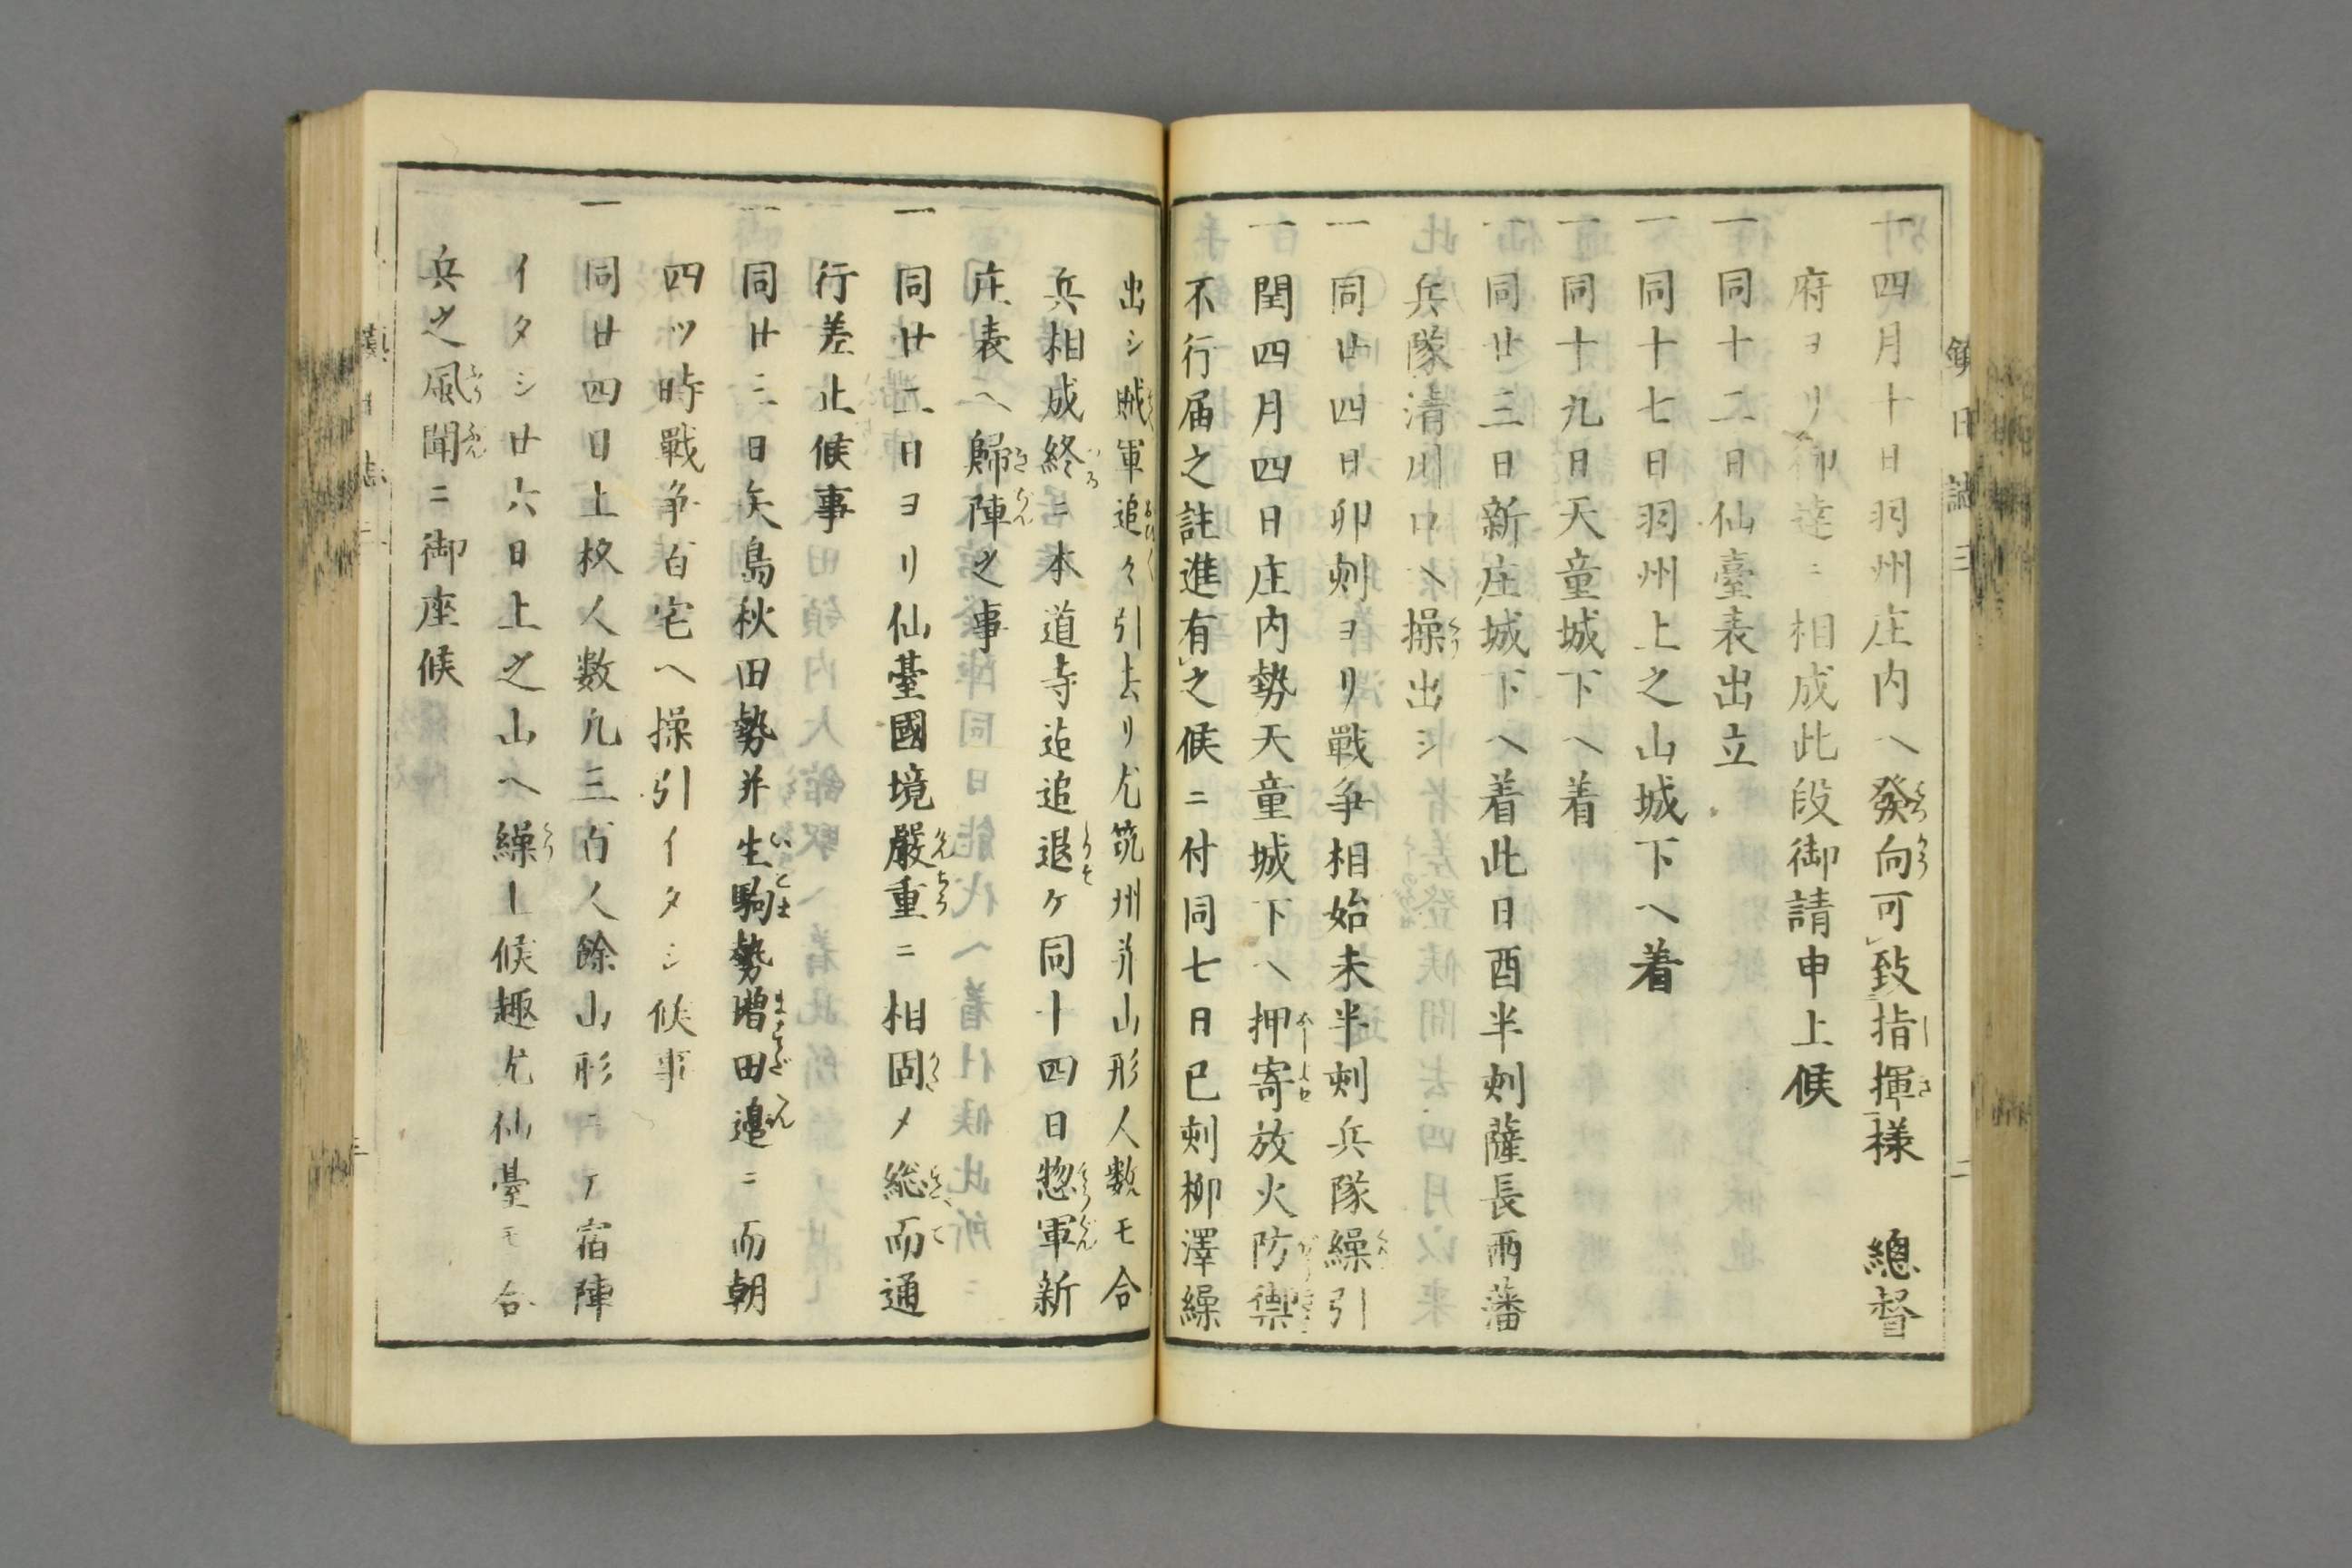 鎮日誌三
一四月十日羽州庄内ヘ發向可致指揮樣　總督
府ヨリ御達ニ相成此段御請申上候
一同十二日仙臺表出立
一同十七日羽州上之山城下ヘ着
一同十九日天童城下ヘ着
一同廿三日新庄城下ヘ着此日酉半刻薩長兩藩
兵隊清川口ヘ操出シ
一同廿四日卯刻ヨリ戰爭相始未半刻兵隊繰引
一閏四月四日庄内勢天童城下ヘ押寄放火防禦
不行届之註進有之候ニ付同七日巳刻柳澤繰
出シ賊軍追々引去リ尤筑州并山形人数モ合
兵相成終ニ本道寺迠追退ケ同十四日惣軍新
庄表ヘ歸陣之事
一同廿二日ヨリ仙臺國境嚴重ニ相固メ総而通
行差止候事
一同廿三日矢島秋田勢并生駒勢増田邉ニ而朝
四ツ時戰争百宅ヘ操引イタシ候事
一同廿四日上杦人数凢三百人餘山形ニテ宿陣
イタシ廿六日上之山ヘ繰上候趣尤仙臺モ合
兵之風聞ニ御座候